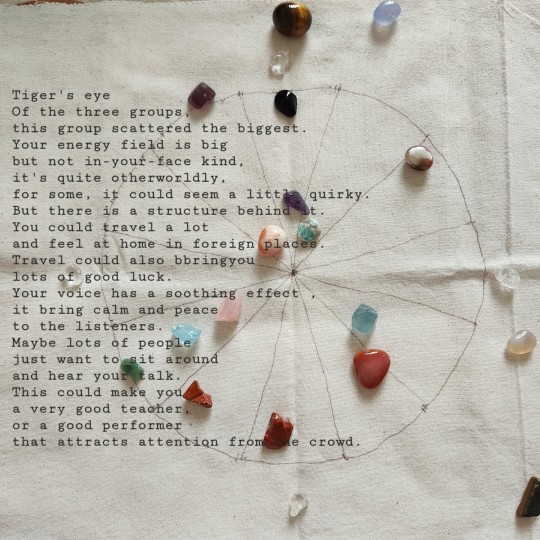 Tiger's eye
Of the three groups,
this group scattered the biggest.
Your energy field is big
but not in-your-face kind,
it's quite otherworldly,
for some, it could seem a little quirky.
But there is a structure behind it.
You could travel a lot
and feel at home in foreign places.
Travel could also bbringyou
lots of good luck.
Your voice has a soothing effect ,
it bring calm and peace
to the listeners.
Maybe lots of people
just want to sit around
and hear your talk.
This could make you
a very good teacher,
or a good performer
that attracts attention from the crowd.